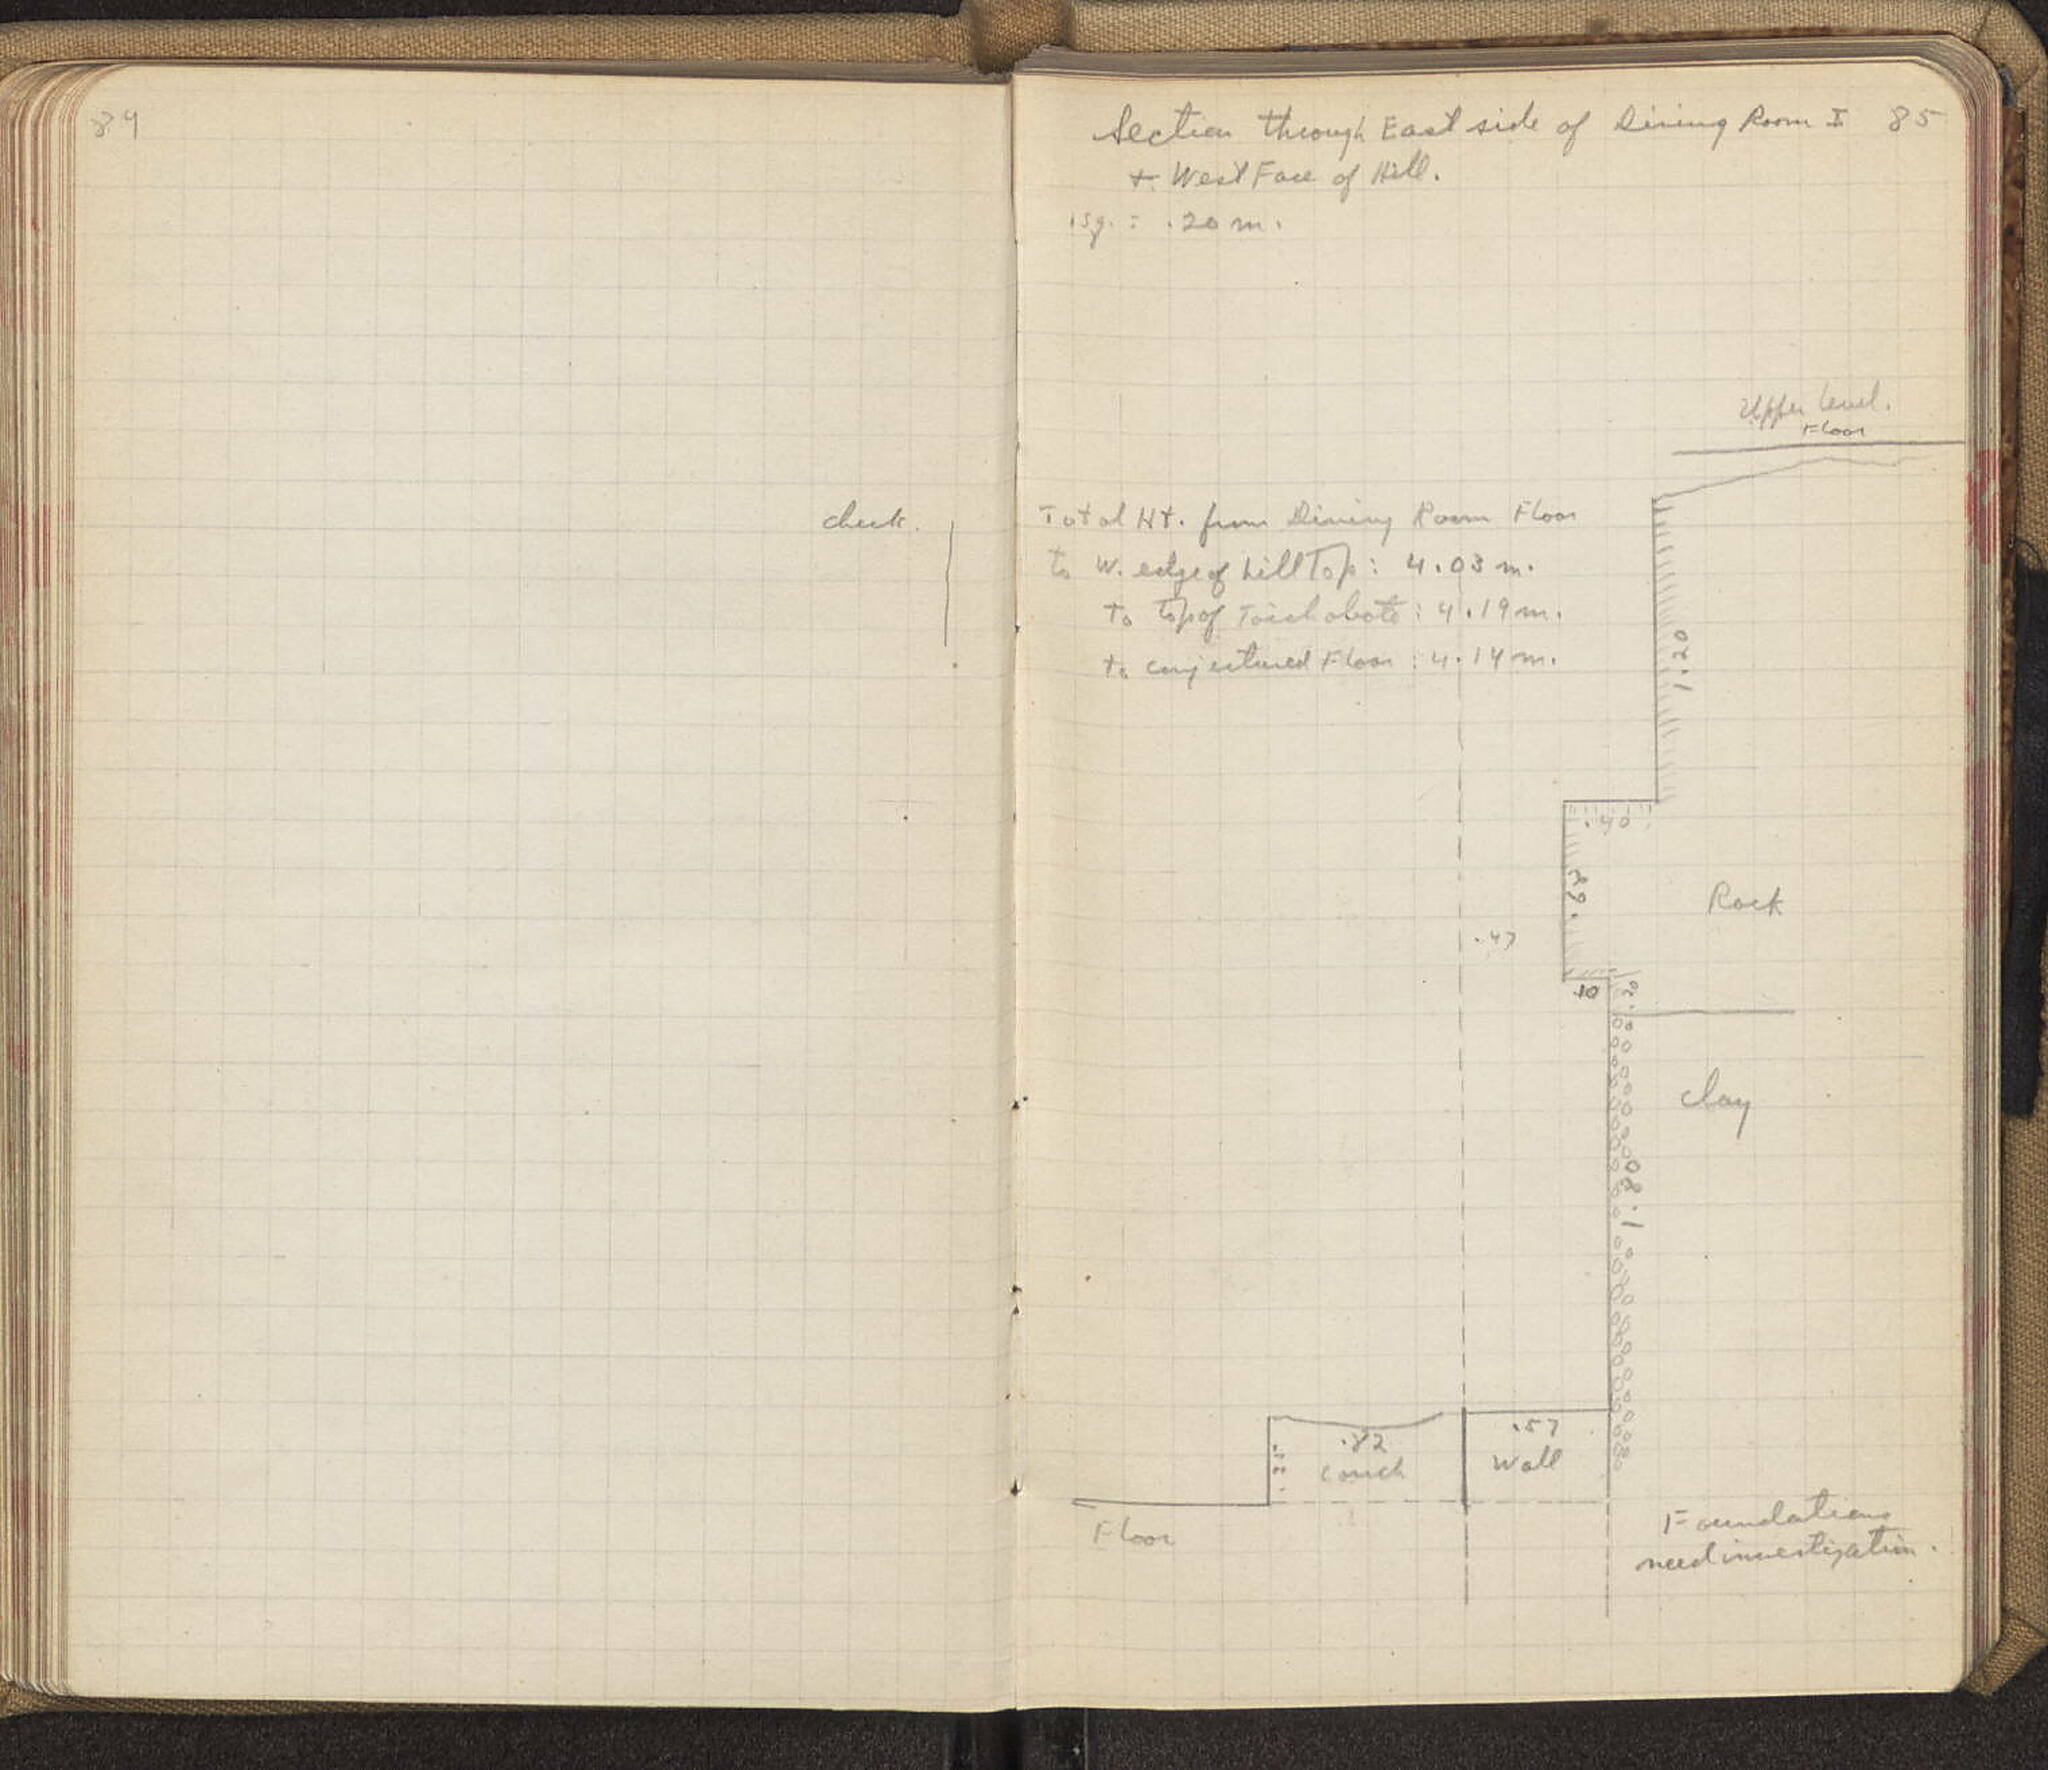 84
check.
Section through East side of Dining Room I 85
+ West Face of Hill.
1 sq. = .20 m.
Upper level.
Floor
Total Ht. from Dining Room Floor
to W. edge of hill top : 4.03 m.
to top of Toichobate : 4.19 m.
to conjectured Floor : 4.14 m.
1.20
.40
Rock
.47
.10
.20
Clay
1.80
.82
couch
.57
Wall
Floor
Foundations
need investigation.